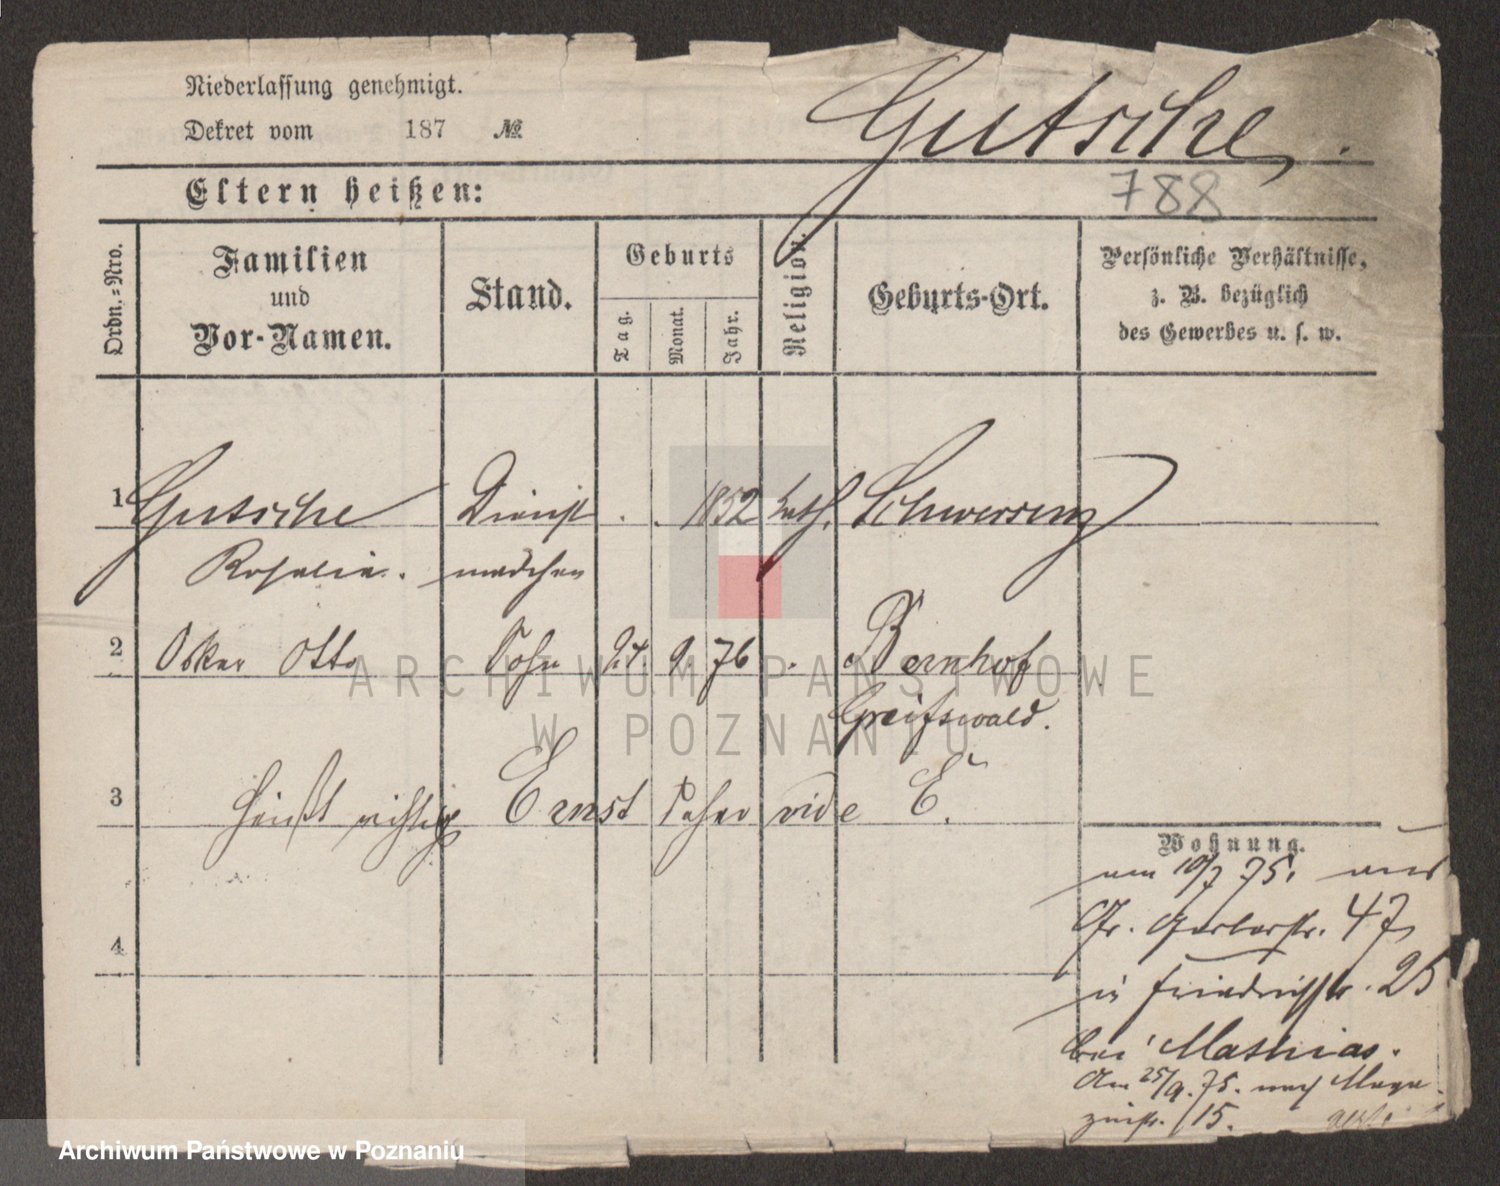 Niederlassung genehmigt.
Dekret vom 187 №
Gutsche.
788
Eltern heißen:
Ordn.-Nro.
Familien
und
Vor-Namen.
Stand.
Geburts
Tag.
Monat.
Jahr.
Religion.
Geburts-Ort.
Persönliche Verhältnisse,
z. B. bezüglich
des Gewerbes u. s. w.
1 Gutsche Dienst . . 1852 kath. Schwersenz
Rosalie. mädchen
2 Oskar Otto Sohn 24. 9. 76 . Bernhof
Greifswald.
3 heißt richtig Ernst vide E.
4
Wohnung.
am 10/7 75. aus
Gr. Gerberstr. 47
in Friedrichstr. 25
bei Mathias.
Am 25/9. 75. nach Maga
zinstr. 15.
ARCHIWUM PAŃSTWOWE
W POZNANIU
Archiwum Państwowe w Poznaniu